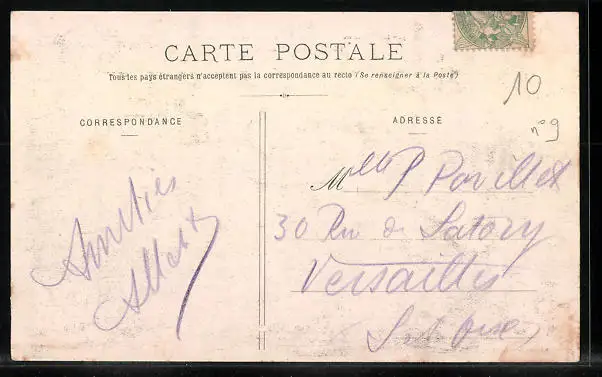 CARTE POSTALE
Tous les pays étrangers n'acceptent pas la correspondance au recto (Se renseigner à la Poste)
CORRESPONDANCE
ADRESSE
10
n° 9
Mlle P Povillet
30 Rue de Satory
Versailles
S. et Oise
Amitiés